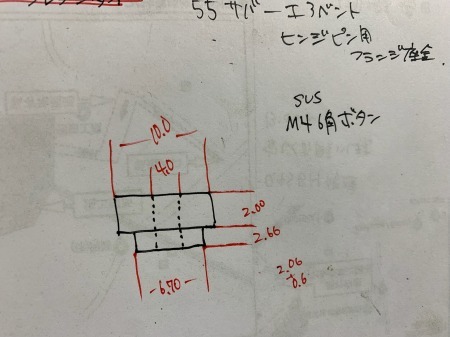 55サバーエアベント
ヒンジピン用
フランジ座金
SUS
M4 6角ボタン
10.0
4.0
2.00
2.66
6.70
2.06
+
0.6